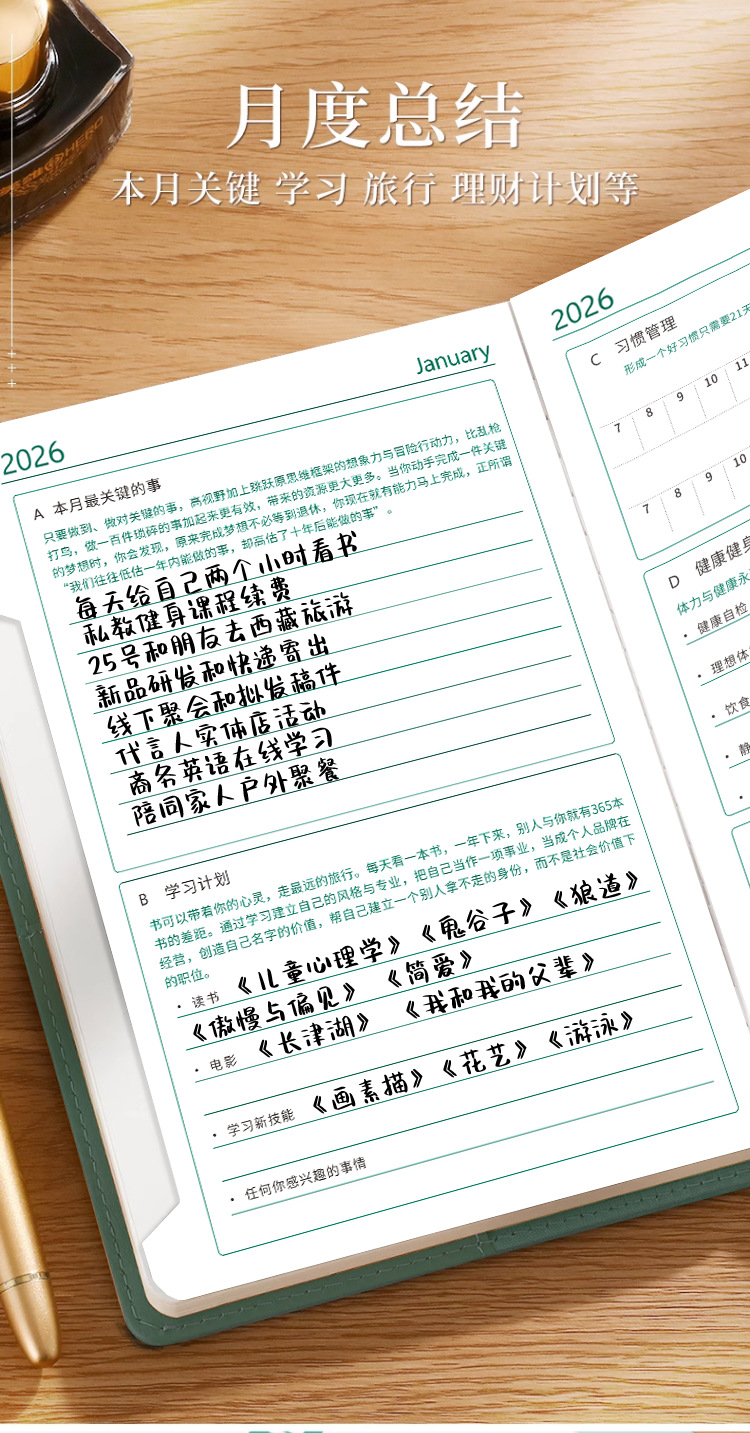 月度总结
本月关键 学习 旅行 理财计划等
2026
January
A 本月最关键的事
只要做到、做对关键的事，高视野加上跳跃原思维框架的想象力与冒险行动力，比乱枪
打鸟，做一百件琐碎的事加起来更有效，带来的资源更大更多。当你动手完成一件关键
的梦想时，你会发现，原来完成梦想不必等到退休，你现在就有能力马上完成，正所谓
“我们往往低估一年内能做的事，却高估了十年后能做的事”。
每天给自己两个小时看书
私教健身课程续费
25号和朋友去西藏旅游
新品研发和快递寄出
线下聚会和拟发稿件
代言人实体店活动
商务英语在线学习
陪同家人户外聚餐
B 学习计划
书可以带着你的心灵，走最远的旅行。每天看一本书，一年下来，别人与你就有365本
书的差距。通过学习建立自己的风格与专业，把自己当作一项事业，当成个人品牌在
经营，创造自己名字的价值，帮自己建立一个别人拿不走的身份，而不是社会价值下
的职位。
· 读书 《儿童心理学》《鬼谷子》《狼道》
《傲慢与偏见》 《简爱》
· 电影 《长津湖》 《我和我的父辈》
· 学习新技能 《画素描》《花艺》《游泳》
· 任何你感兴趣的事情
2026
C 习惯管理
形成一个好习惯只需要21天
7 8 9 10 11
7 8 9 10
D 健康健身
体力与健康永
· 健康自检
· 理想体
· 饮食
· 静